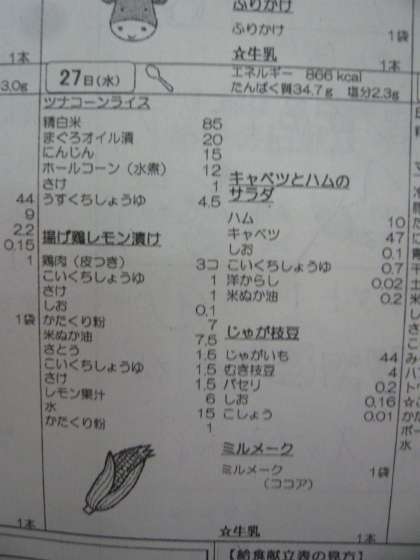 ふりかけ
ふりかけ 1袋
1本
☆牛乳
27日(水)
エネルギー 866 kcal
たんぱく質34.7g 塩分2.3g
3.0g
ツナコーンライス
精白米 85
まぐろオイル漬 20
にんじん 15
ホールコーン(水煮) 12
さけ 1
うすくちしょうゆ 4.5
44
9
2.2
0.15
1
1袋
揚げ鶏レモン漬け
鶏肉(皮つき) 3コ
こいくちしょうゆ 1
さけ 1
しお 0.1
かたくり粉 7
米ぬか油 7.5
さとう 1.5
こいくちしょうゆ 1.5
さけ 1.5
レモン果汁 6
水 15
かたくり粉 1
キャベツとハムの
サラダ
ハム 10
キャベツ 47
しお 0.1
こいくちしょうゆ 0.7
洋からし 0.02
米ぬか油 0.2
じゃが枝豆
じゃがいも 44
むき枝豆 4
パセリ 0.2
しお 0.16
こしょう 0.01
ミルメーク
ミルメーク 1袋
(ココア)
☆牛乳 1本
1本
【給食献立表の見方】